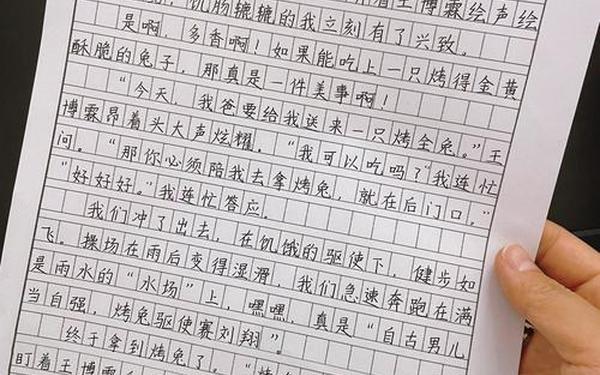 着王博霖绘声绘
饥肠辘辘的我立刻有了兴致。
是啊，多香啊！如果能吃上一只烤得金黄
酥脆的兔子，那真是一件美事啊！
“今天，我爸要给我送来一只烤全兔。”王
博霖昂着头大声炫耀，“我可以吃吗？”我连忙
问。“那你必须陪我去拿烤兔，就在后门口。”
“好好好。”我连忙答应。
我们冲了出去，在饥饿的驱使下，健步如
飞。操场在雨后变得湿滑，我们急速奔跑在满
是雨水的“水场”上，嘿嘿，真是“自古男儿
当自强，烤兔驱使赛刘翔”。
终于拿到烤兔了。“烤
盯着王博霖